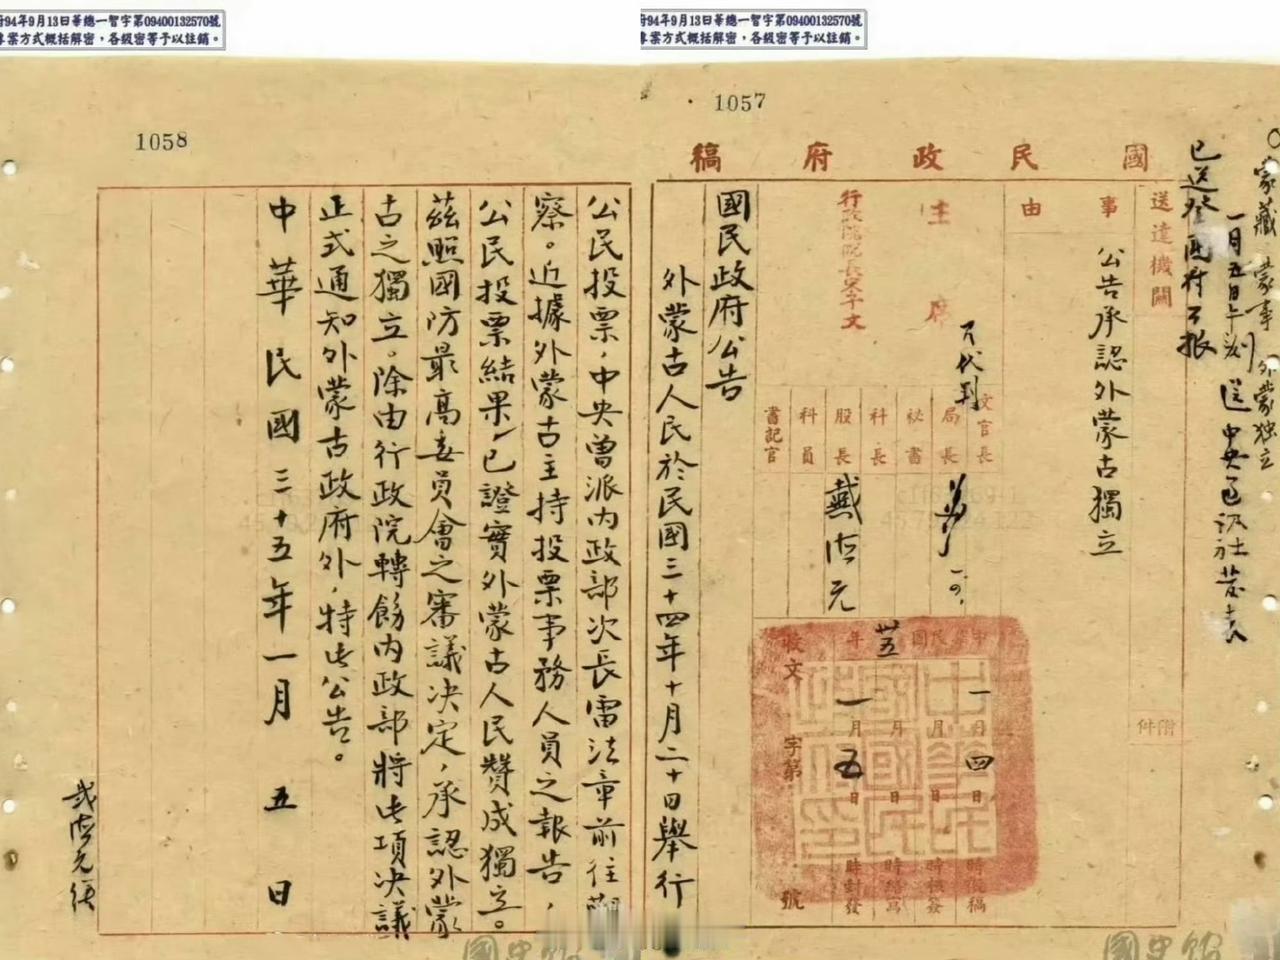 府94年9月13日華總一智字第09400132570號
專案方式概括解密，各級密等予以註銷。
府94年9月13日華總一智字第09400132570號
專案方式概括解密，各級密等予以註銷。
1057
國民政府稿
蒙藏 蒙事 外蒙独立
一月五日午刻送中央通訊社發表
已送登國府公报
送達機關
附件
事由
公告承認外蒙古獨立
主席
行政院院長宋子文
代判
文官長
局長
秘書
科長
股長
科員
書記官
戴
元
中華民國卅五年
一月四日時擬稿
月日時核簽
月日時繕寫
一月五日時封發
收文字第號
國民政府公告
外蒙古人民於民國三十四年十月二十日舉行
1058
公民投票，中央曾派內政部次長雷法章前往觀
察。近據外蒙古主持投票事務人員之報告，
公民投票結果，已證實外蒙古人民贊成獨立。
茲照國防最高委員會之審議決定，承認外蒙
古之獨立。除由行政院轉飭內政部將此項決議
正式通知外蒙古政府外，特此公告。
中華民國三十五年一月五日
國史館
國史館